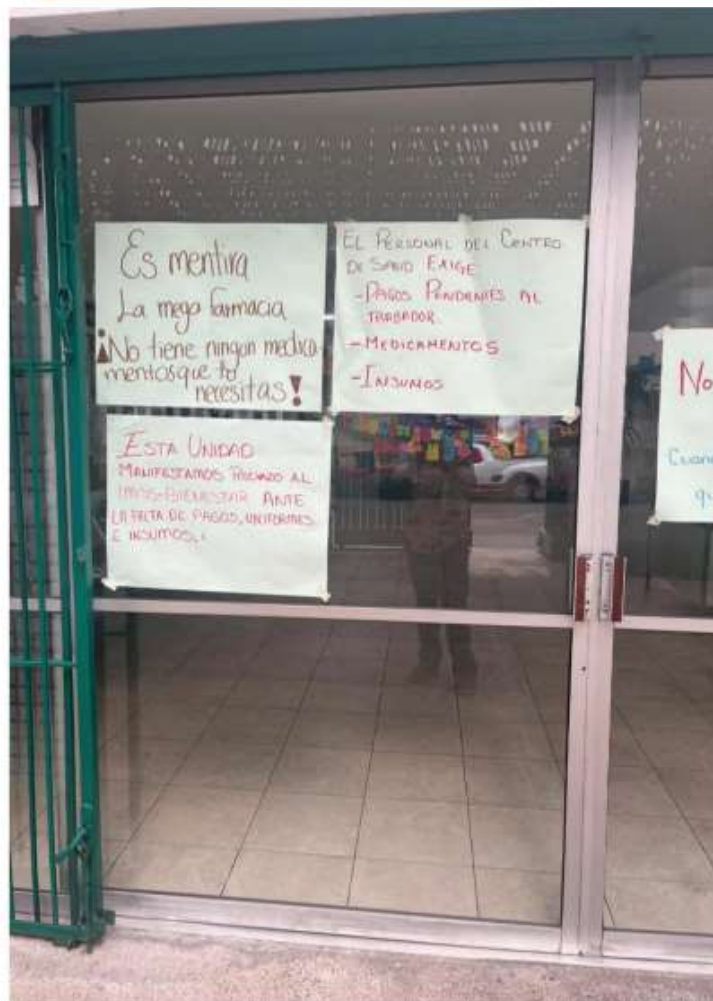 Es mentira
La mega farmacia
¡No tiene ningun medica
mentos que tu
necesitas!
EL PERSONAL DEL CENTRO
DE SALUD EXIGE
- PAGOS PENDIENTES AL
TRABADOR
- MEDICAMENTOS
- INSUMOS
ESTA UNIDAD
MANIFESTAMOS RECHAZO AL
IMSS-BIENESTAR ANTE
LA FALTA DE PAGOS, UNIFORMES
E INSUMOS,
No
Cuan
qu